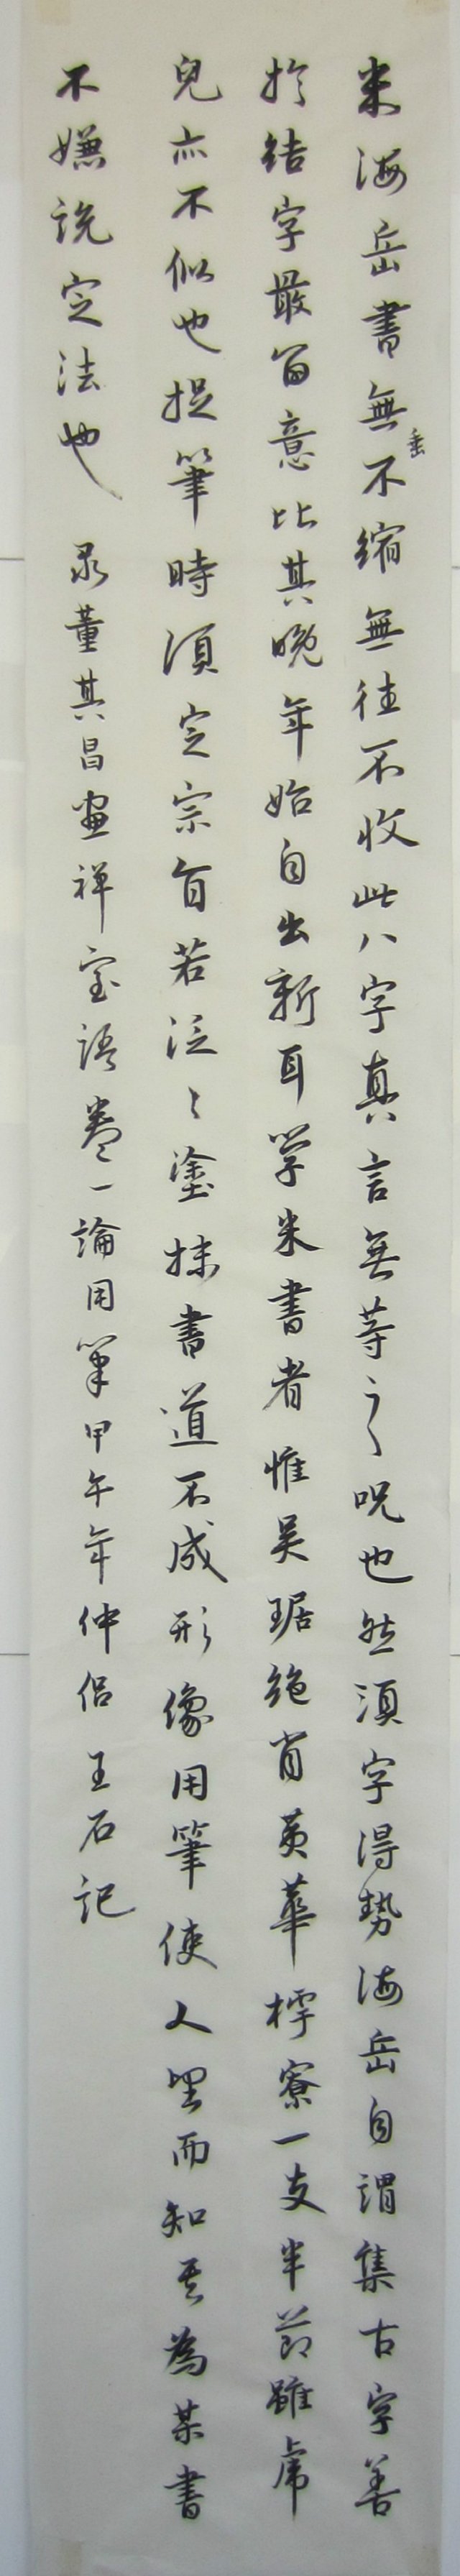 米海岳書無垂不縮無往不收此八字真言無等之咒也然須字得勢海岳自謂集古字善
於結字最留意比其晚年始自出新耳學米書者惟吳琚絕肖黃華樗寮一支半節雖虎
兒亦不似也捉筆時須定宗旨若泛泛塗抹書道不成形像用筆使人望而知其為某書
不嫌說定法也 录董其昌画禅室語卷一論用筆甲午年仲侣王石記